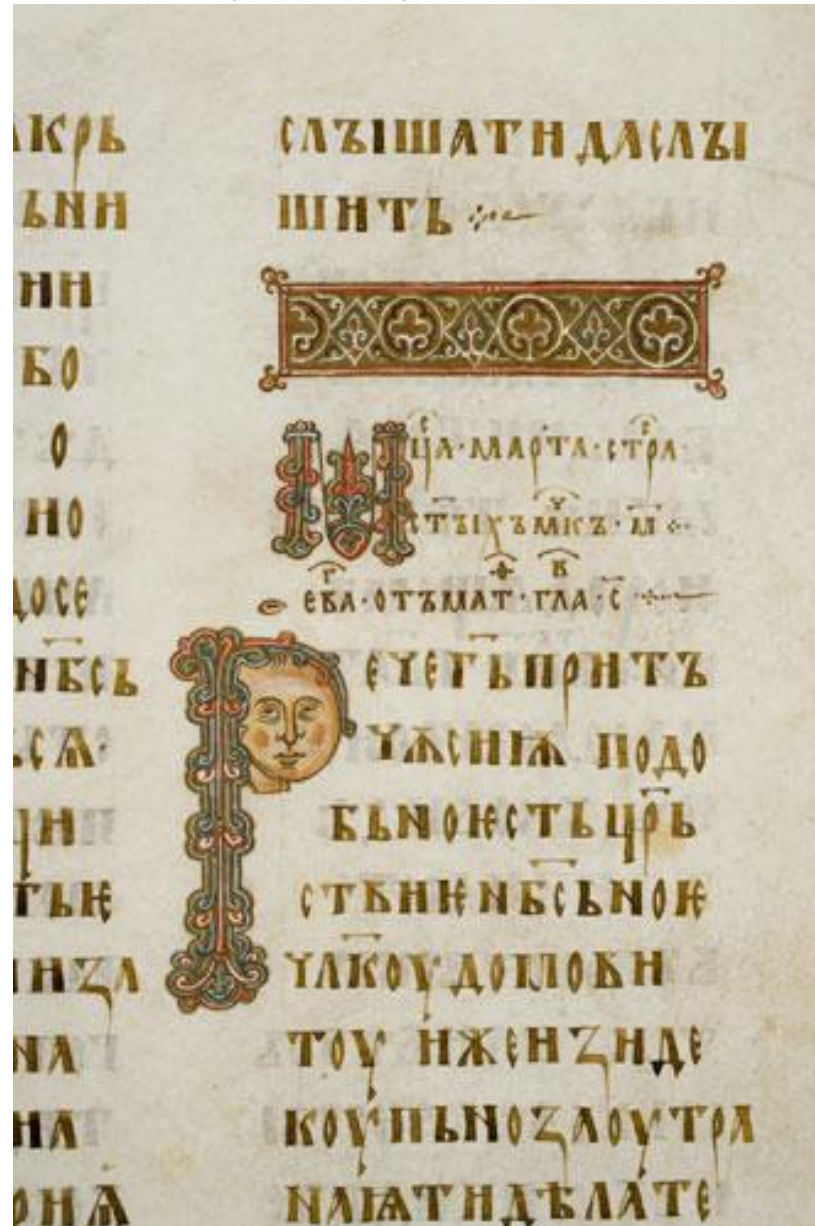 КРЬ
ЬНИ
НИ
БО
О
НО
ДОСЕ
НБ҃СЬ
СѦ·
ЦИ
ТЬѤ
ИꙀА
НА
НА
ОНѦ
СЛЪІШАТИДАСЛЪІ
ШИТЬ
М҃Цⷭ҇А·МАРТА·СТРⷭ҇А·
СТ҃ЪІХЪМⷱ҇КЪ·М҃
ЕВⷢ҇А·ОТЪМАТⷴ҇·ГЛАⷡ҇·С҃
РЕЧЕГ҃ЬПРИТЪ
ЧѪСИІѪ ПОДО
БЬНОѤСТЬЦР҃Ь
СТВИѤНБ҃СЬНОѤ
ЧЛ҃КОУДОМОВИ
ТОУ ИЖЕИꙀИДЕ
КОУПЬНОꙀАОУТРА
НАІѨТИДѢЛАТЕ